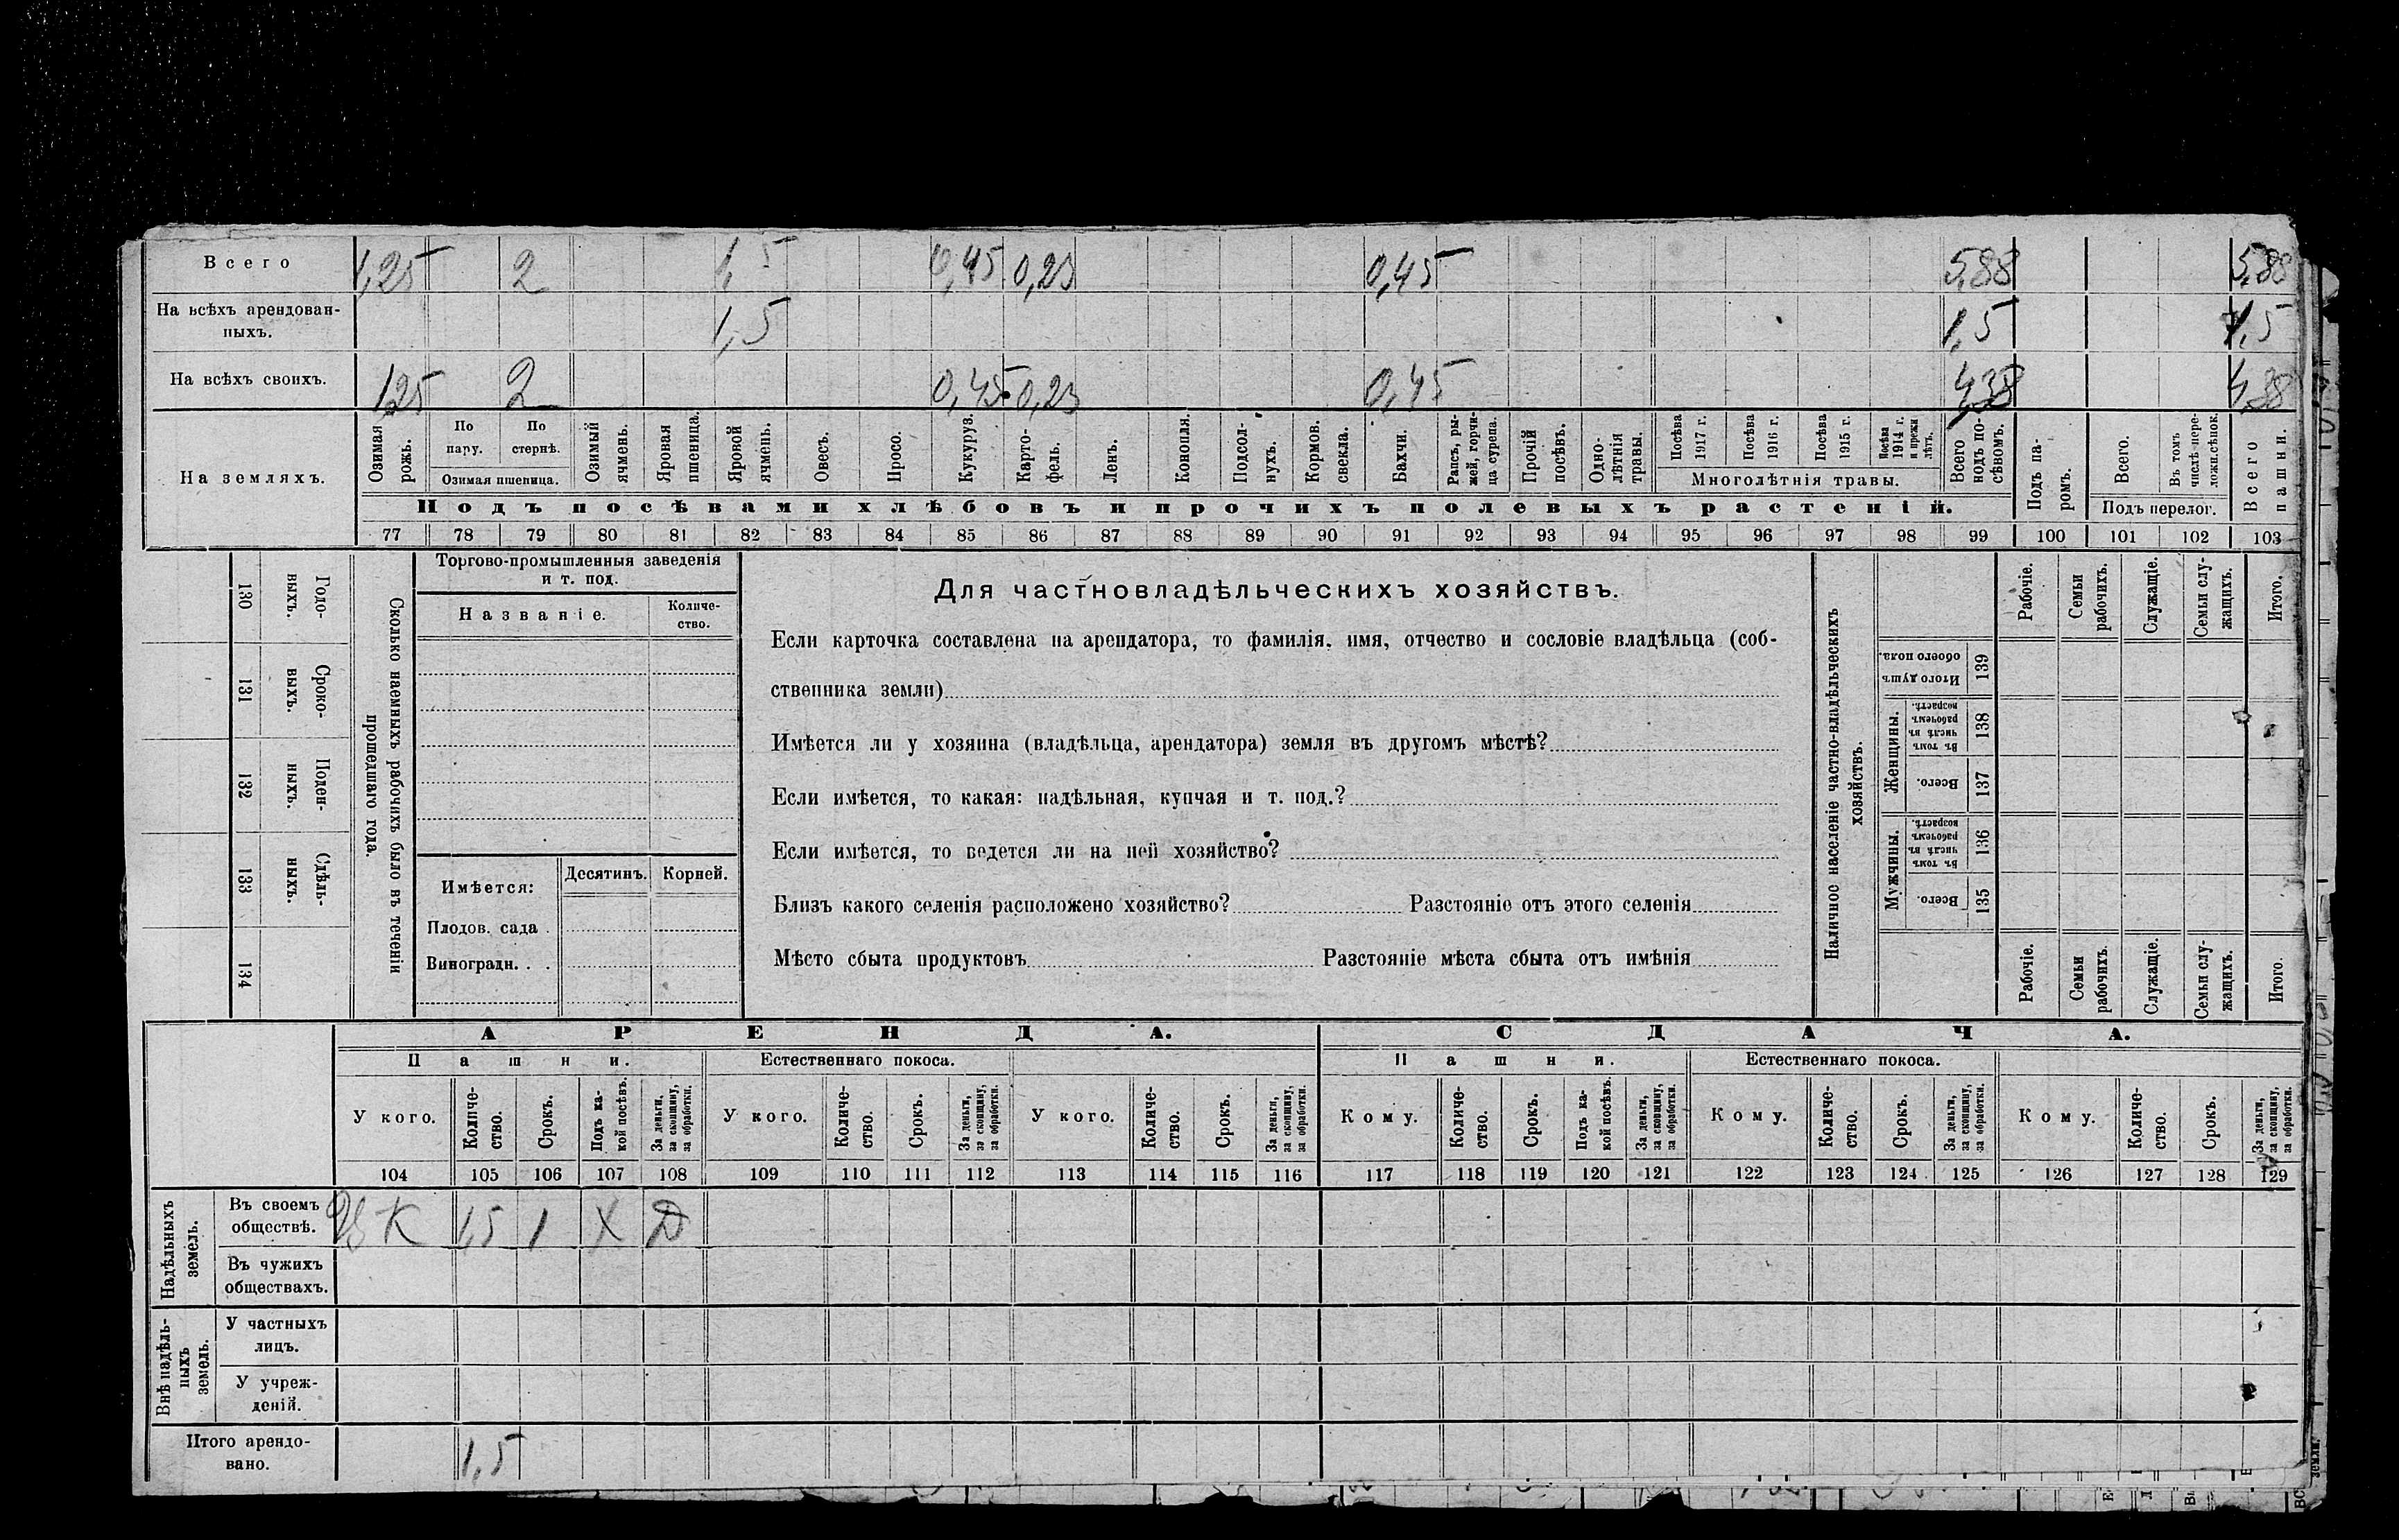 Всего 1,25 2 1,5 0,45 0,23 0,45 5,88 5,88
На всѣхъ арендован-
ныхъ. 1,5 1,5 1,5
На всѣхъ своихъ. 1,25 2 0,45 0,23 0,45 4,38 4,38
На земляхъ.
Озимая рожь.
По пару.
По стернѣ.
Озимая пшеница.
Озимый ячмень.
Яровая пшеница.
Яровой ячмень.
Овесъ.
Просо.
Кукуруз.
Карто-
фель.
Ленъ.
Конопля.
Подсол-
нухъ.
Кормов.
свекла.
Бахчи.
Рапсъ, ры-
жей, горчи-
ца сурепа.
Прочій
посѣвъ.
Одно-
лѣтнія
травы.
Посѣва
1917 г.
Посѣва
1916 г.
Посѣва
1915 г.
Посѣва
1914 г.
и прежн
лѣтъ.
Многолѣтнія травы.
Всего
подъ по-
сѣвомъ.
Подъ па-
ромъ.
Всего.
Въ томъ
числѣ пере-
ложн.сѣнок.
Подъ перелог.
Всего
пашни.
Подъ посѣвами хлѣбовъ и прочихъ полевыхъ растеній.
77 78 79 80 81 82 83 84 85 86 87 88 89 90 91 92 93 94 95 96 97 98 99 100 101 102 103
Сколько наемныхъ рабочихъ было въ теченіи
прошедшаго года.
Годо-
выхъ.
130
Сроко-
выхъ.
131
Поден-
ныхъ.
132
Сдѣль-
ныхъ.
133
134
Торгово-промышленныя заведенія
и т. под.
Названіе.
Количе-
ство.
Имѣется:
Десятинъ.
Корней.
Плодов. сада .
Виноградн. . .
Для частновладѣльческихъ хозяйствъ.
Если карточка составлена на арендатора, то фамилія, имя, отчество и сословіе владѣльца (соб-
ственника земли)
Имѣется ли у хозяина (владѣльца, арендатора) земля въ другомъ мѣстѣ?
Если имѣется, то какая: надѣльная, купчая и т. под.?
Если имѣется, то ведется ли на ней хозяйство?
Близъ какого селенія расположено хозяйство? Разстояніе отъ этого селенія
Мѣсто сбыта продуктовъ Разстояніе мѣста сбыта отъ имѣнія
Наличное населеніе частно-владѣльческихъ
хозяйствъ.
Рабочіе.
Семьи
рабочихъ.
Служащіе.
Семьи слу-
жащихъ.
Итого.
Итого душъ
обоего пола.
139
Женщины.
Въ томъ
числѣ въ
рабочемъ
возрастѣ.
138
Всего.
137
Мужчины.
Въ томъ
числѣ въ
рабочемъ
возрастѣ.
136
Всего.
135
Рабочіе.
Семьи
рабочихъ.
Служащіе.
Семьи слу-
жащихъ.
Итого.
АРЕНДА. СДАЧА.
Пашни. Естественнаго покоса. Пашни. Естественнаго покоса.
У кого.
Количе-
ство.
Срокъ.
Подъ ка-
кой посѣвъ.
За деньги,
за скопщину,
за обработки.
У кого.
Количе-
ство.
Срокъ.
За деньги,
за скопщину,
за обработки.
У кого.
Количе-
ство.
Срокъ.
За деньги,
за скопщину,
за обработки.
Кому.
Количе-
ство.
Срокъ.
Подъ ка-
кой посѣвъ.
За деньги,
за скопщину,
за обработки.
Кому.
Количе-
ство.
Срокъ.
За деньги,
за скопщину,
за обработки.
Кому.
Количе-
ство.
Срокъ.
За деньги,
за скопщину,
за обработки.
104 105 106 107 108 109 110 111 112 113 114 115 116 117 118 119 120 121 122 123 124 125 126 127 128 129
Надѣльныхъ
земель.
Въ своемъ
обществѣ. К 1,5 1 Х Д
Въ чужихъ
обществахъ.
Внѣ надѣль-
ныхъ
земель.
У частныхъ
лицъ.
У учреж-
деній.
Итого арендо-
вано. 1,5